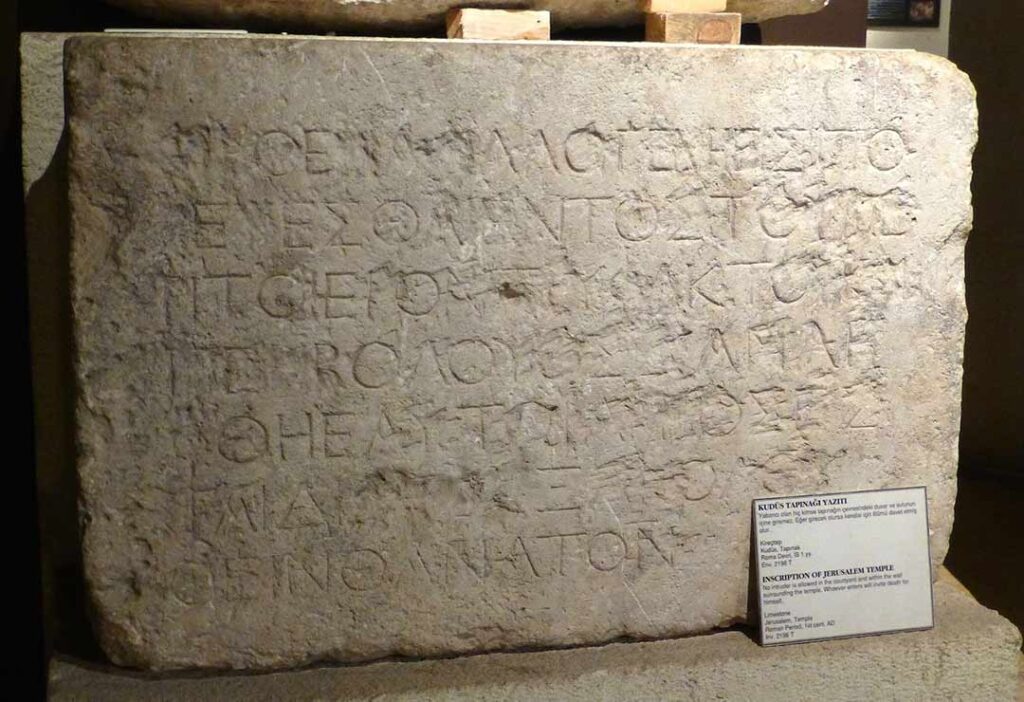 ΜΗΘΕΝΑΑΛΛΟΓΕΝΗΕΙΣΠΟ
ΡΕΥΕΣΘΑΙΕΝΤΟΣΤΟΥΠΕ
ΡΙΤΟΙΕΡΟΝΤΡΥΦΑΚΤΟΥΚΑΙ
ΠΕΡΙΒΟΛΟΥΟΣΔΑΝΛΗ
ΦΘΗΕΑΥΤΩΙΑΙΤΙΟΣΕΣ
ΤΑΙΔΙΑΤΟΕΞΑΚΟΛΟΥ
ΘΕΙΝΘΑΝΑΤΟΝ
KUDÜS TAPINAĞI YAZITI
Yabancı olan hiç kimse tapınağın çevresindeki duvar ve avlunun
içine giremez. Eğer girecek olursa kendisi için ölümü davet etmiş
olur.
Kireçtaşı
Kudüs, Tapınak
Roma Devri, İS 1.yy.
Env. 2196 T
INSCRIPTION OF JERUSALEM TEMPLE
No intruder is allowed in the courtyard and within the wall
surrounding the temple. Whoever enters will invite death for
himself.
Limestone
Jerusalem, Temple
Roman Period, 1st cent. AD
Inv. 2196 T